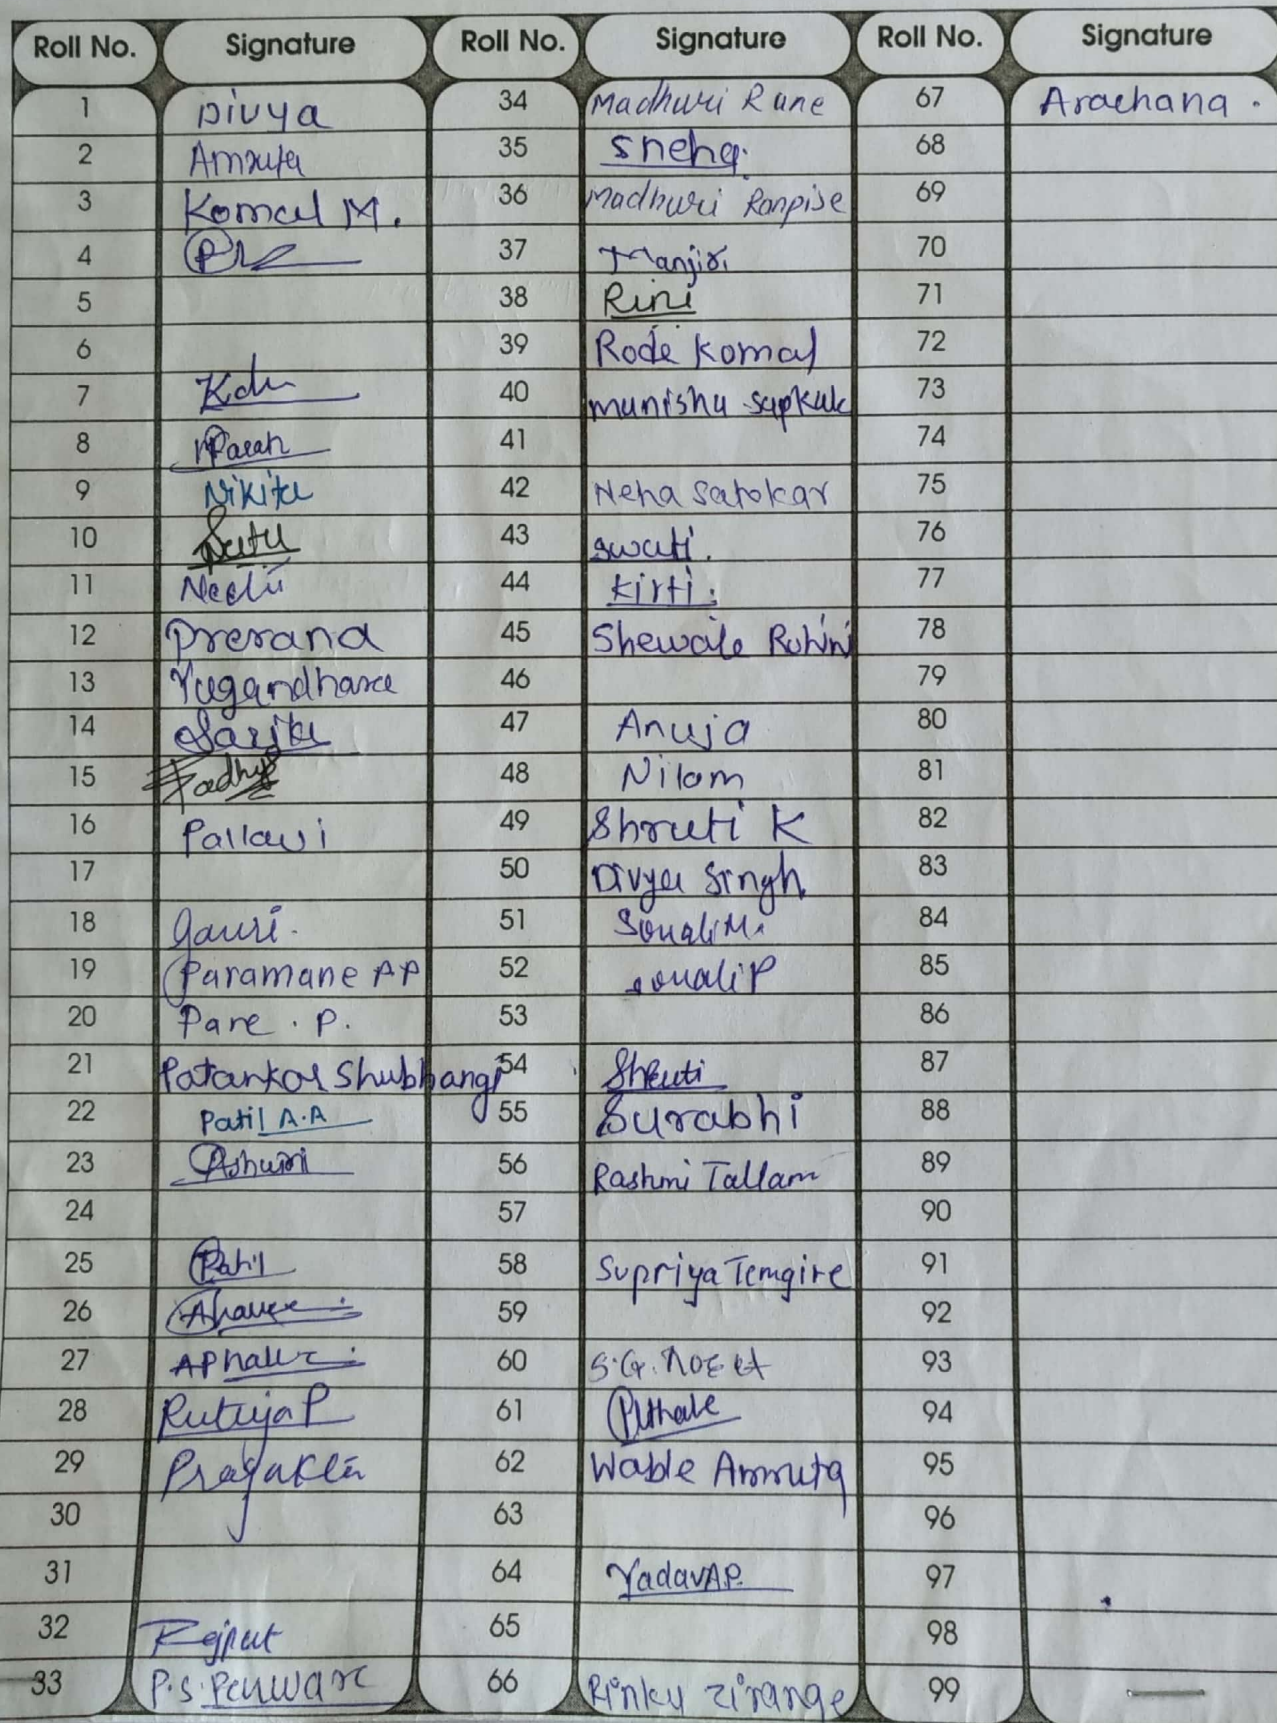 Roll No. Signature Roll No. Signature Roll No. Signature
1 Divya 34 Madhuri Rane 67 Arachana.
2 Amruta 35 Sneha. 68
3 Komal M. 36 Madhuri Ranpise 69
4 37 Manjiri 70
5 38 Rini 71
6 39 Rode Komal 72
7 40 munisha sapkal 73
8 41 74
9 Nikita 42 Neha Satokar 75
10 43 swati. 76
11 44 Kirti. 77
12 Prerana 45 Shewale Rohini 78
13 Yugandhara 46 79
14 Sarika 47 Anuja 80
15 48 Nilam 81
16 Pallavi 49 Shruti K 82
17 50 Divya Singh 83
18 Gauri. 51 Sonali M. 84
19 Paramane AP 52 sonali P 85
20 Pare . P. 53 86
21 Patankar Shubhangi 54 Shruti 87
22 Patil A.A 55 Surabhi 88
23 Ashwini 56 Rashmi Tallam 89
24 57 90
25 Patil 58 Supriya Temgire 91
26 59 92
27 60 S.G. 93
28 Rutuja P 61 94
29 62 Wable Amruta 95
30 63 96
31 64 Yadav A.P. 97
32 Rajput 65 98
33 P.S. 66 Rinku zirange 99